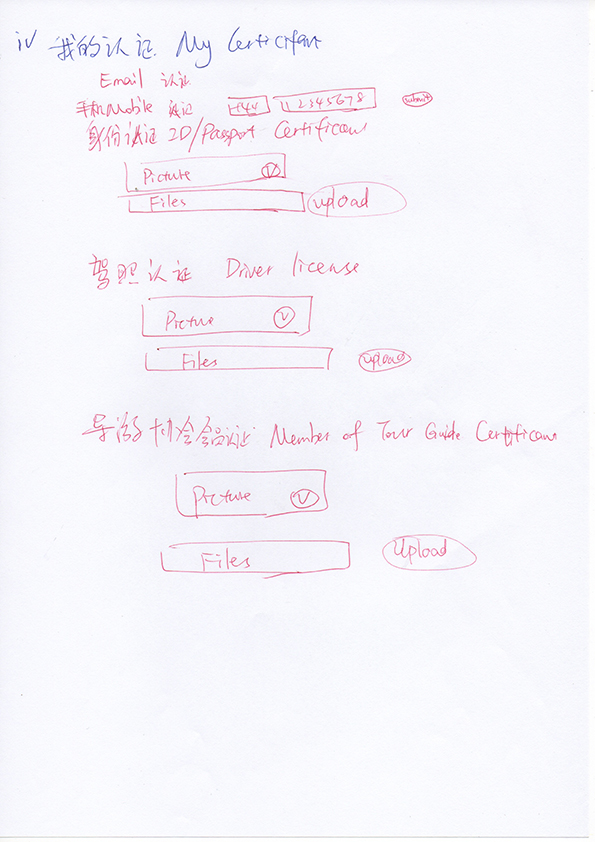 iv 我的认证 My Certicifant
Email 认证
手机Mobile 认证 +44 12345678 submit
身份认证 ID/Passport Certificans
Picture V
Files upload
驾照认证 Driver license
Picture V
Files upload
导游 会会员认证 Member of Tour Guide Certificans
Picture V
Files Upload